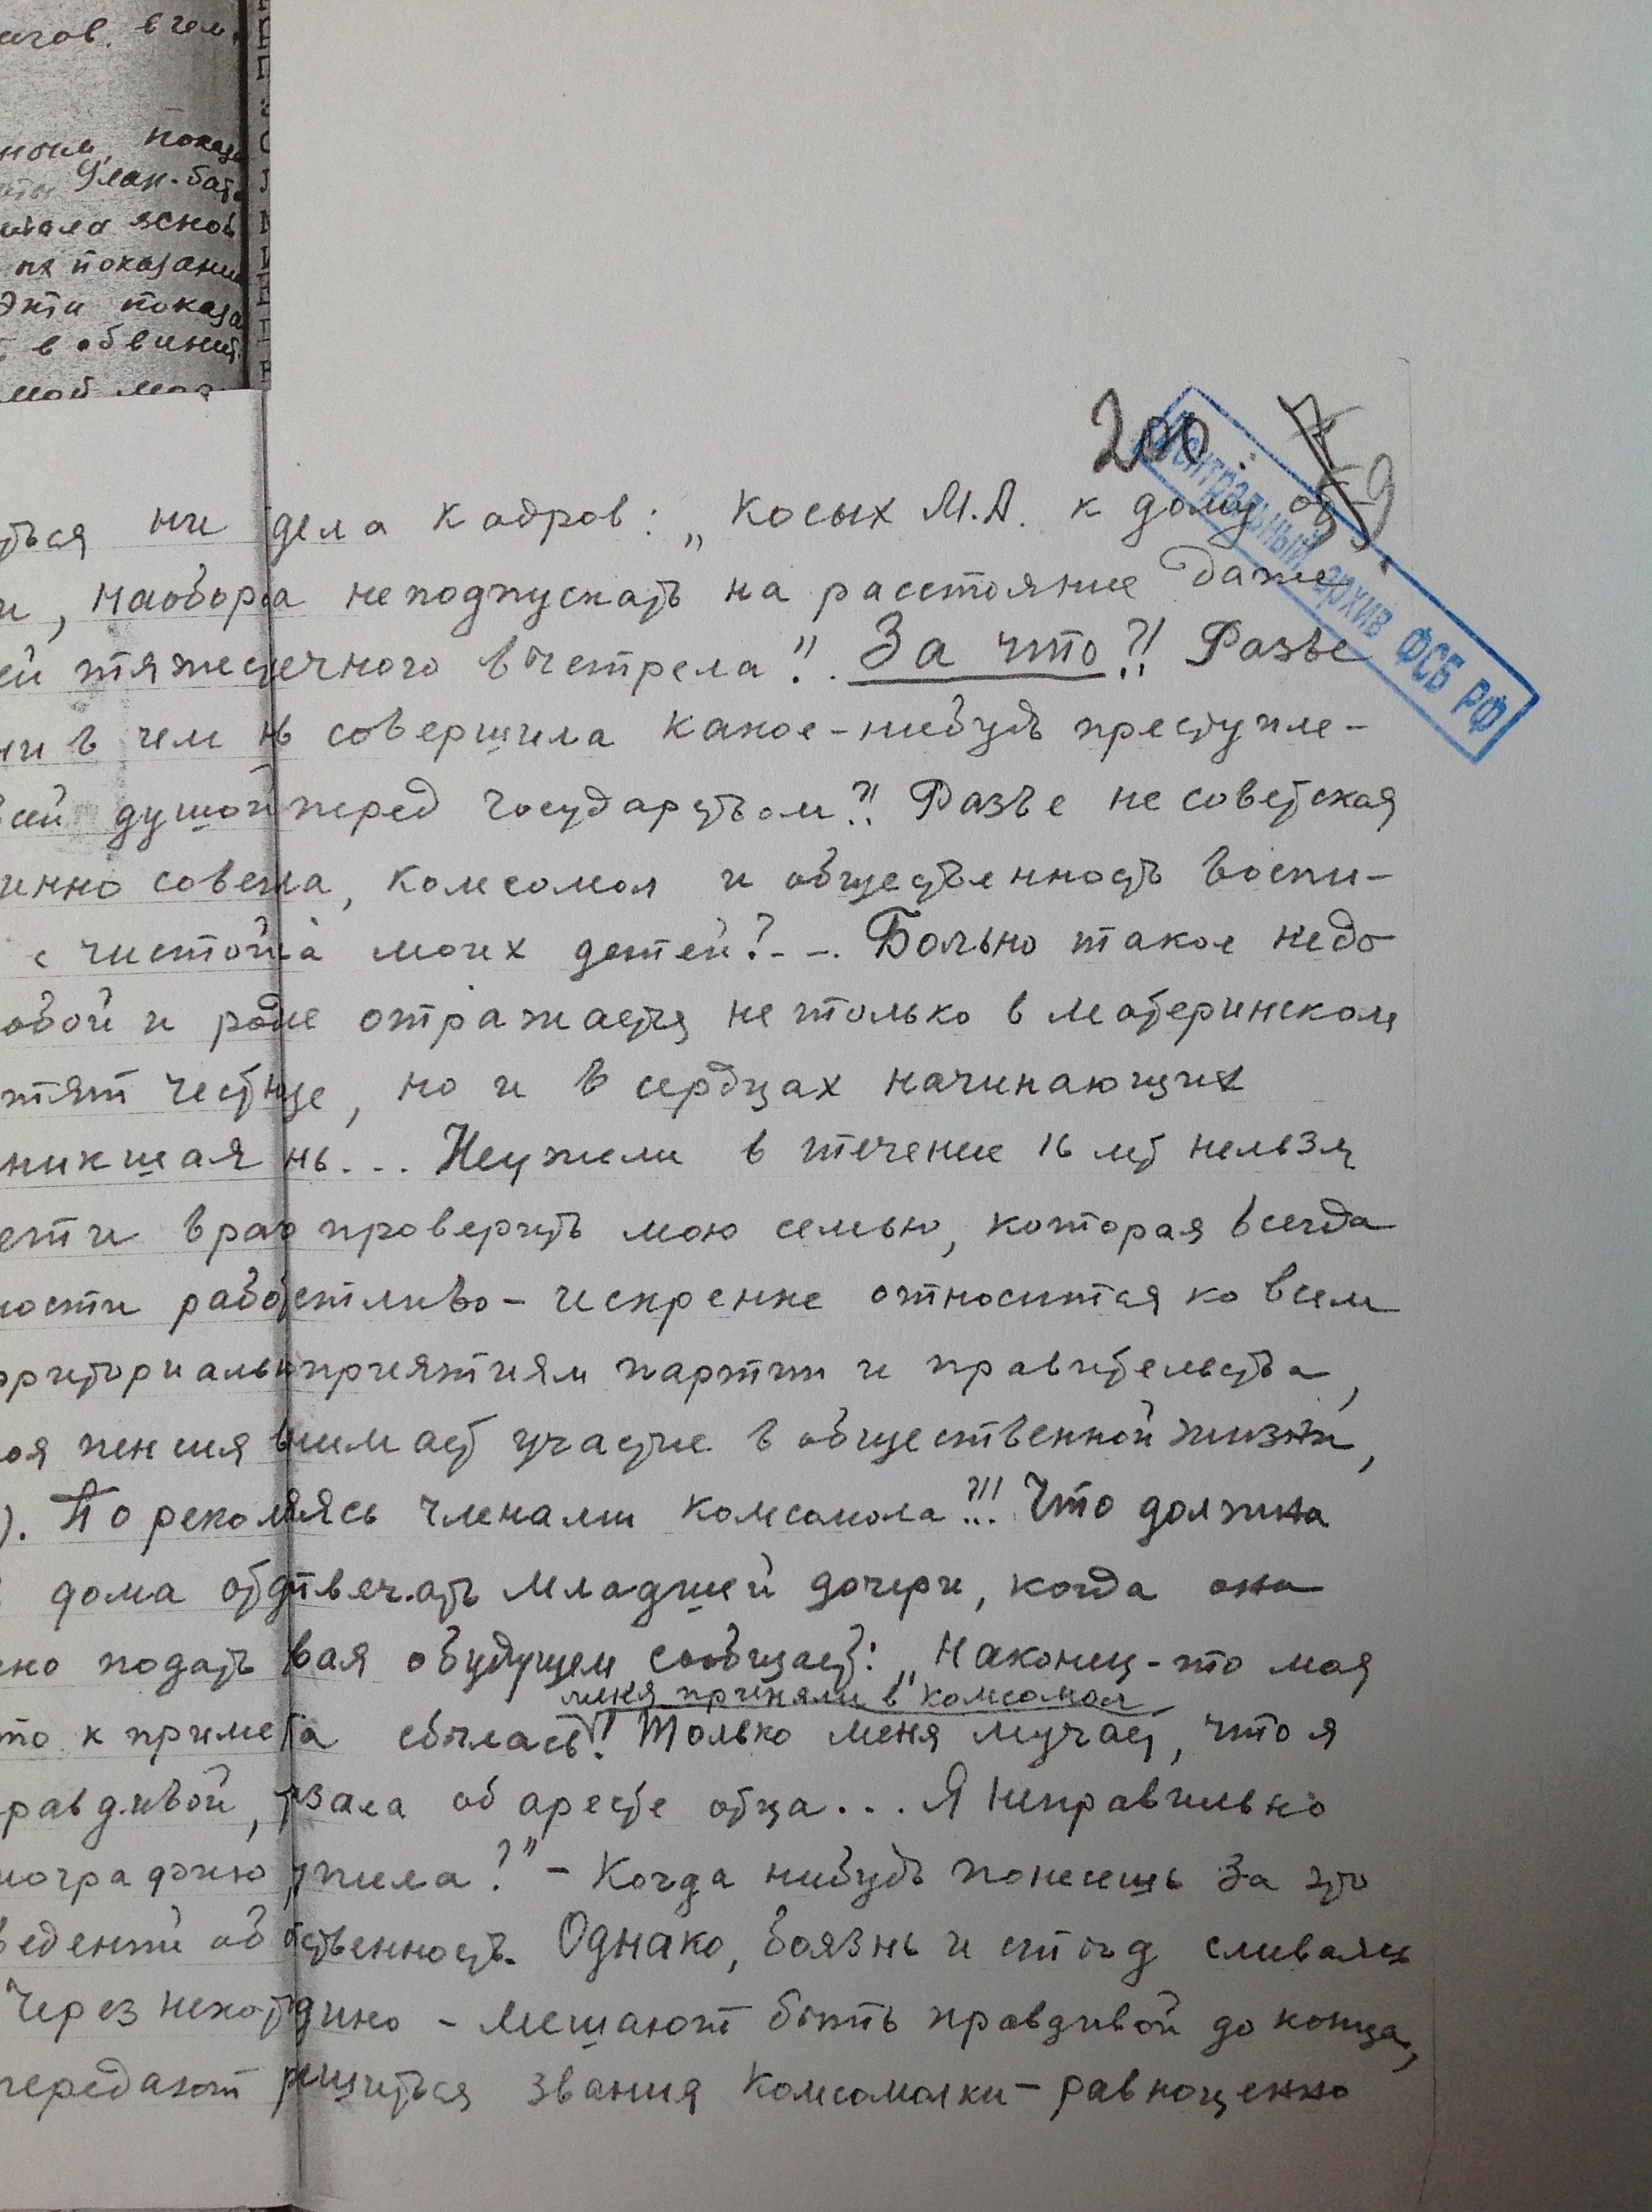 игов. в чем
показа
Улан-бато
ясной
показани
Эти показа
в обвинит.
мой
200.
59
Центральный архив ФСБ РФ
ться ни дела кадров: „Косых М.А. к дому от
и, наобора неподпускать на расстояние даже
ей тяжес ечного выстрела“. За что?! Разве
ни в чем совершила какое-нибудь преступле-
сей душой перед государством?! Разве не советская
инно совет а, комсомол и общественность воспи-
с чистой моих детей?-- Больно такое недо
овой и роди отражается не только в материнском
тят чест це, но и в сердцах начинающих
никшая нь... Неужели в течение 16 лет нельзя
ети враг проверить мою семью, которая всегда
ности работ етливо-искренне относится ко всем
рриториальн приятиям партии и правительства,
оя пенсия нимает участие в общественной жизни,
). По реком ясь членами комсомола?!! Что должна
дома отд твечать младшей дочери, когда она
но подать вая о будущем сообщает: „Наконец-то моя
меня приняли в комсомол
то к приме та сбылась! Только меня мучает, что я
равдивой, зала об аресте отца... Я неправильно
ногра пила?“ - Когда нибудь понесешь за это
ведений об тственность. Однако, боязнь и стыд сливаясь
Через некот дино - мешают быть правдивой до конца,
передают решиться звания комсомолки - равноценно